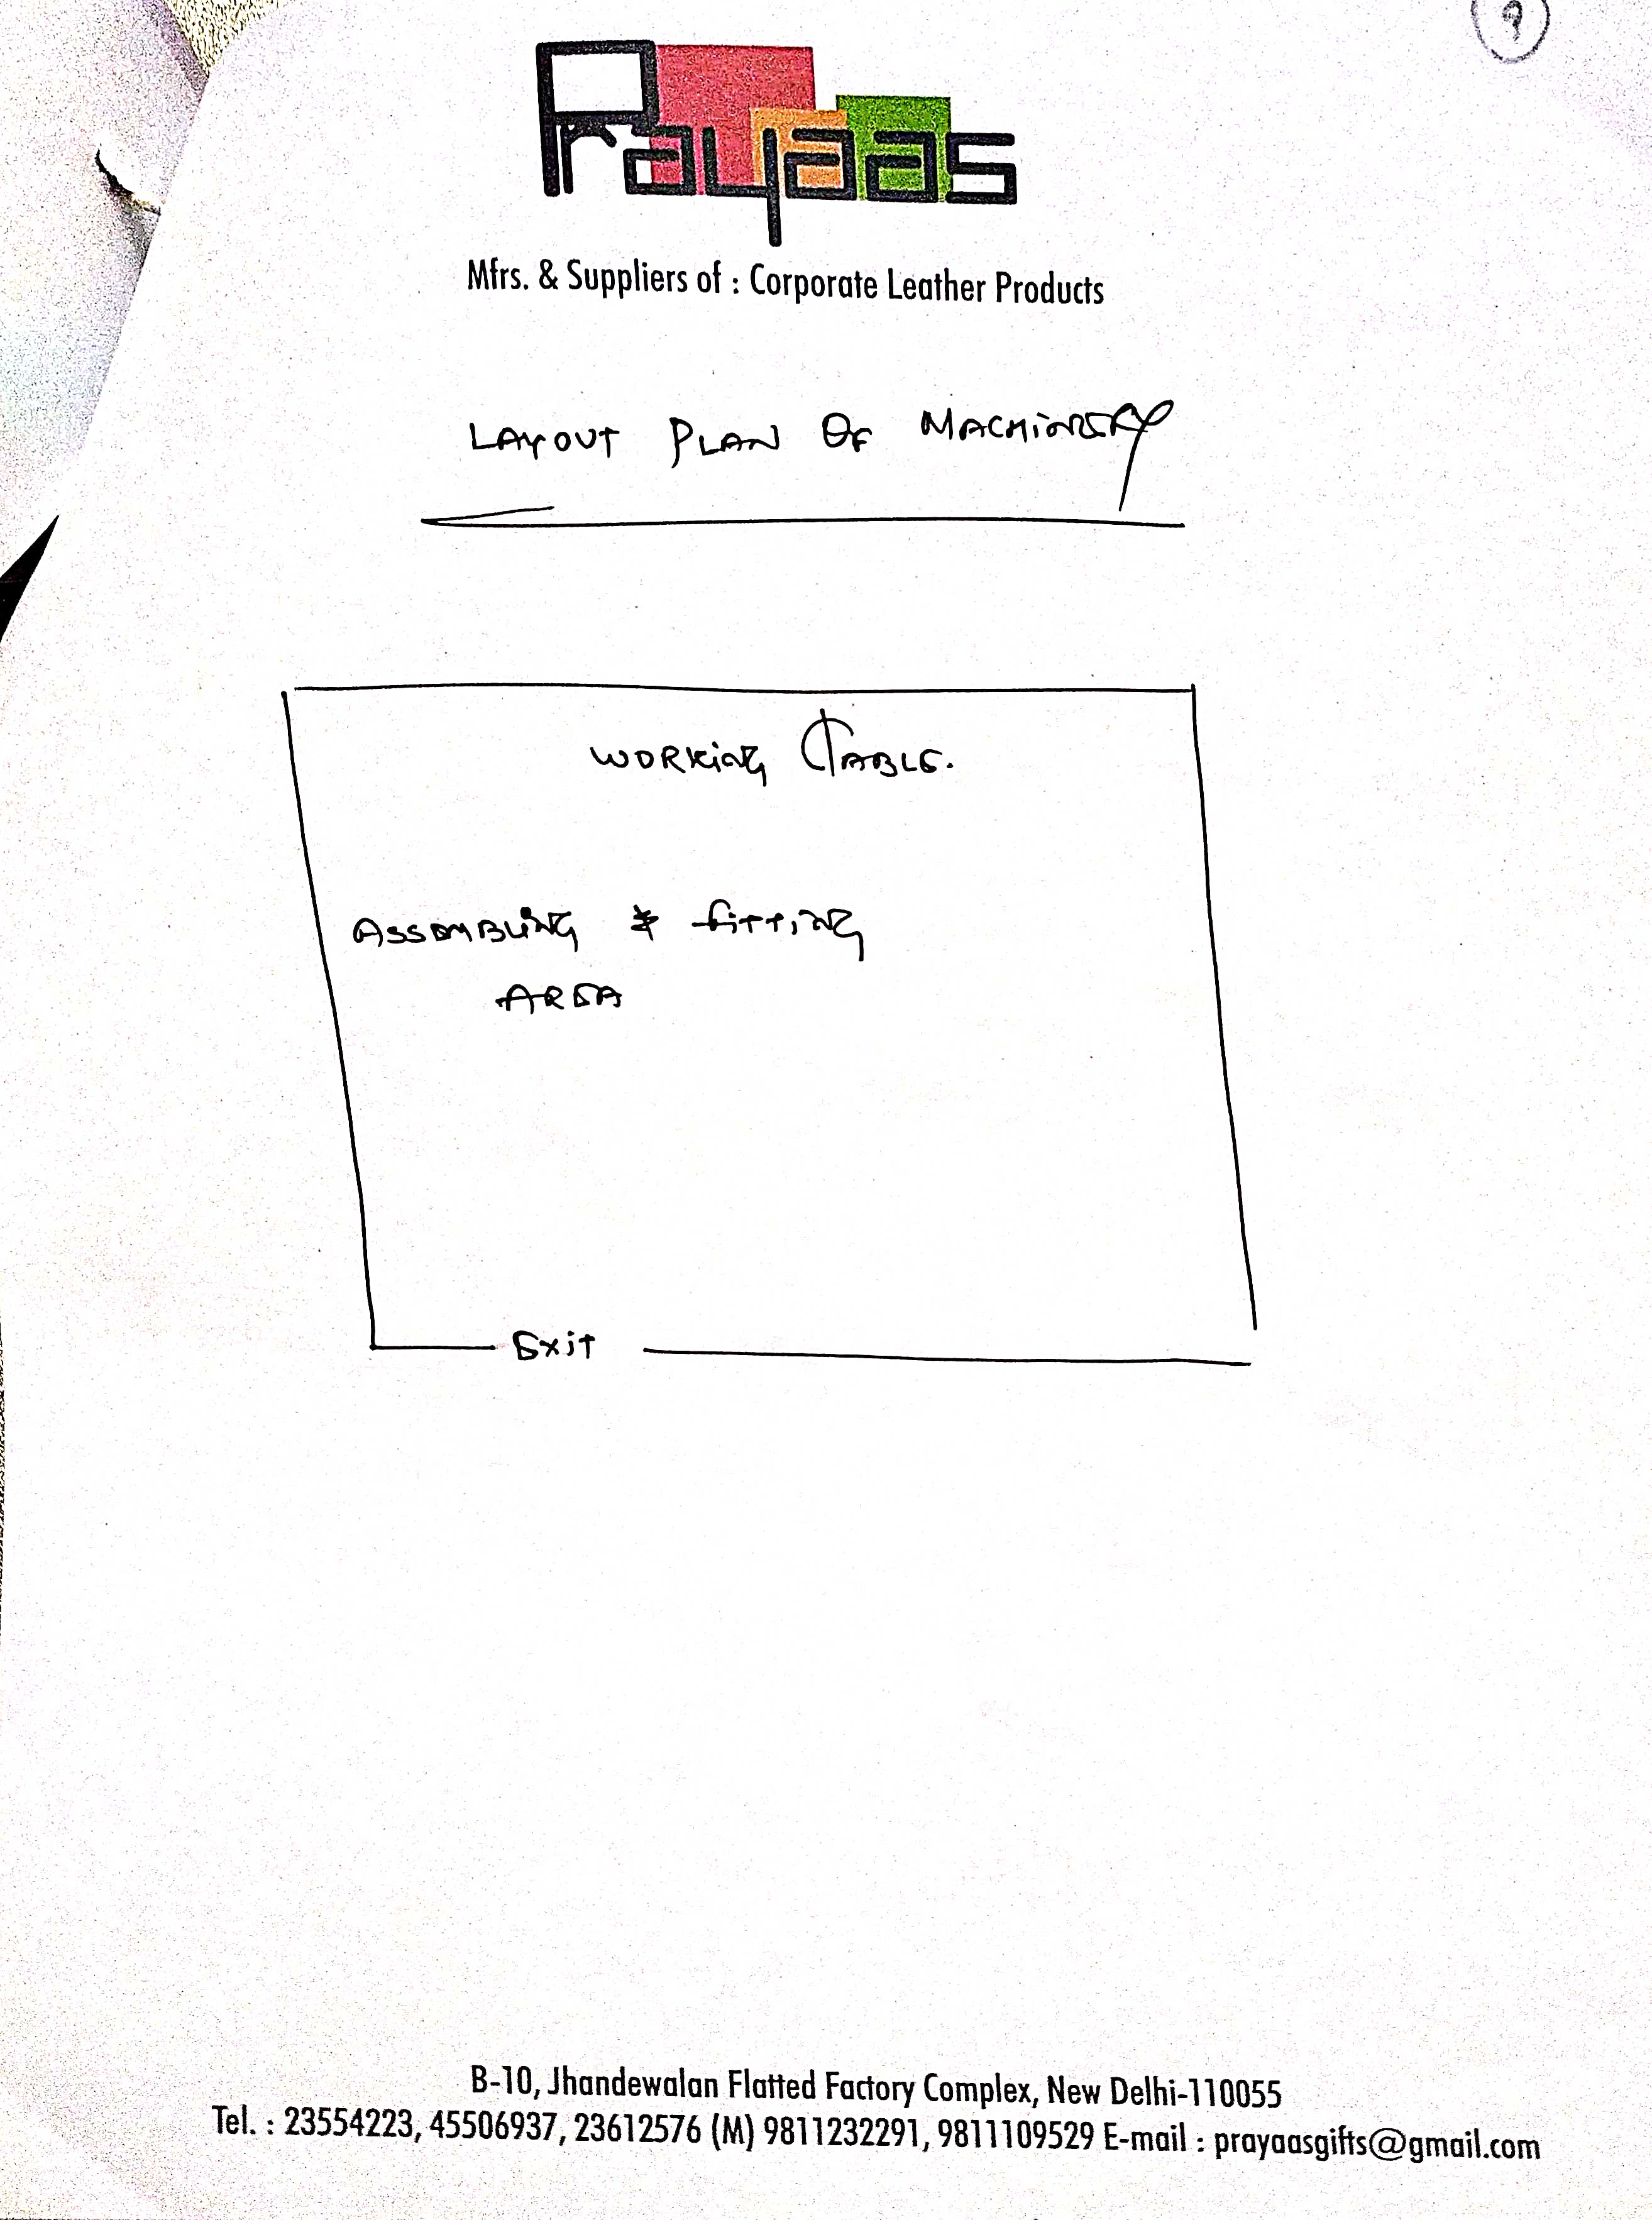 9
Prayaas
Mfrs. & Suppliers of : Corporate Leather Products
LAYOUT PLAN OF MACHINERY
WORKING TABLE.
ASSEMBLING & fitting
AREA
Exit
B-10, Jhandewalan Flatted Factory Complex, New Delhi-110055
Tel. : 23554223, 45506937, 23612576 (M) 9811232291, 9811109529 E-mail : prayaasgifts@gmail.com